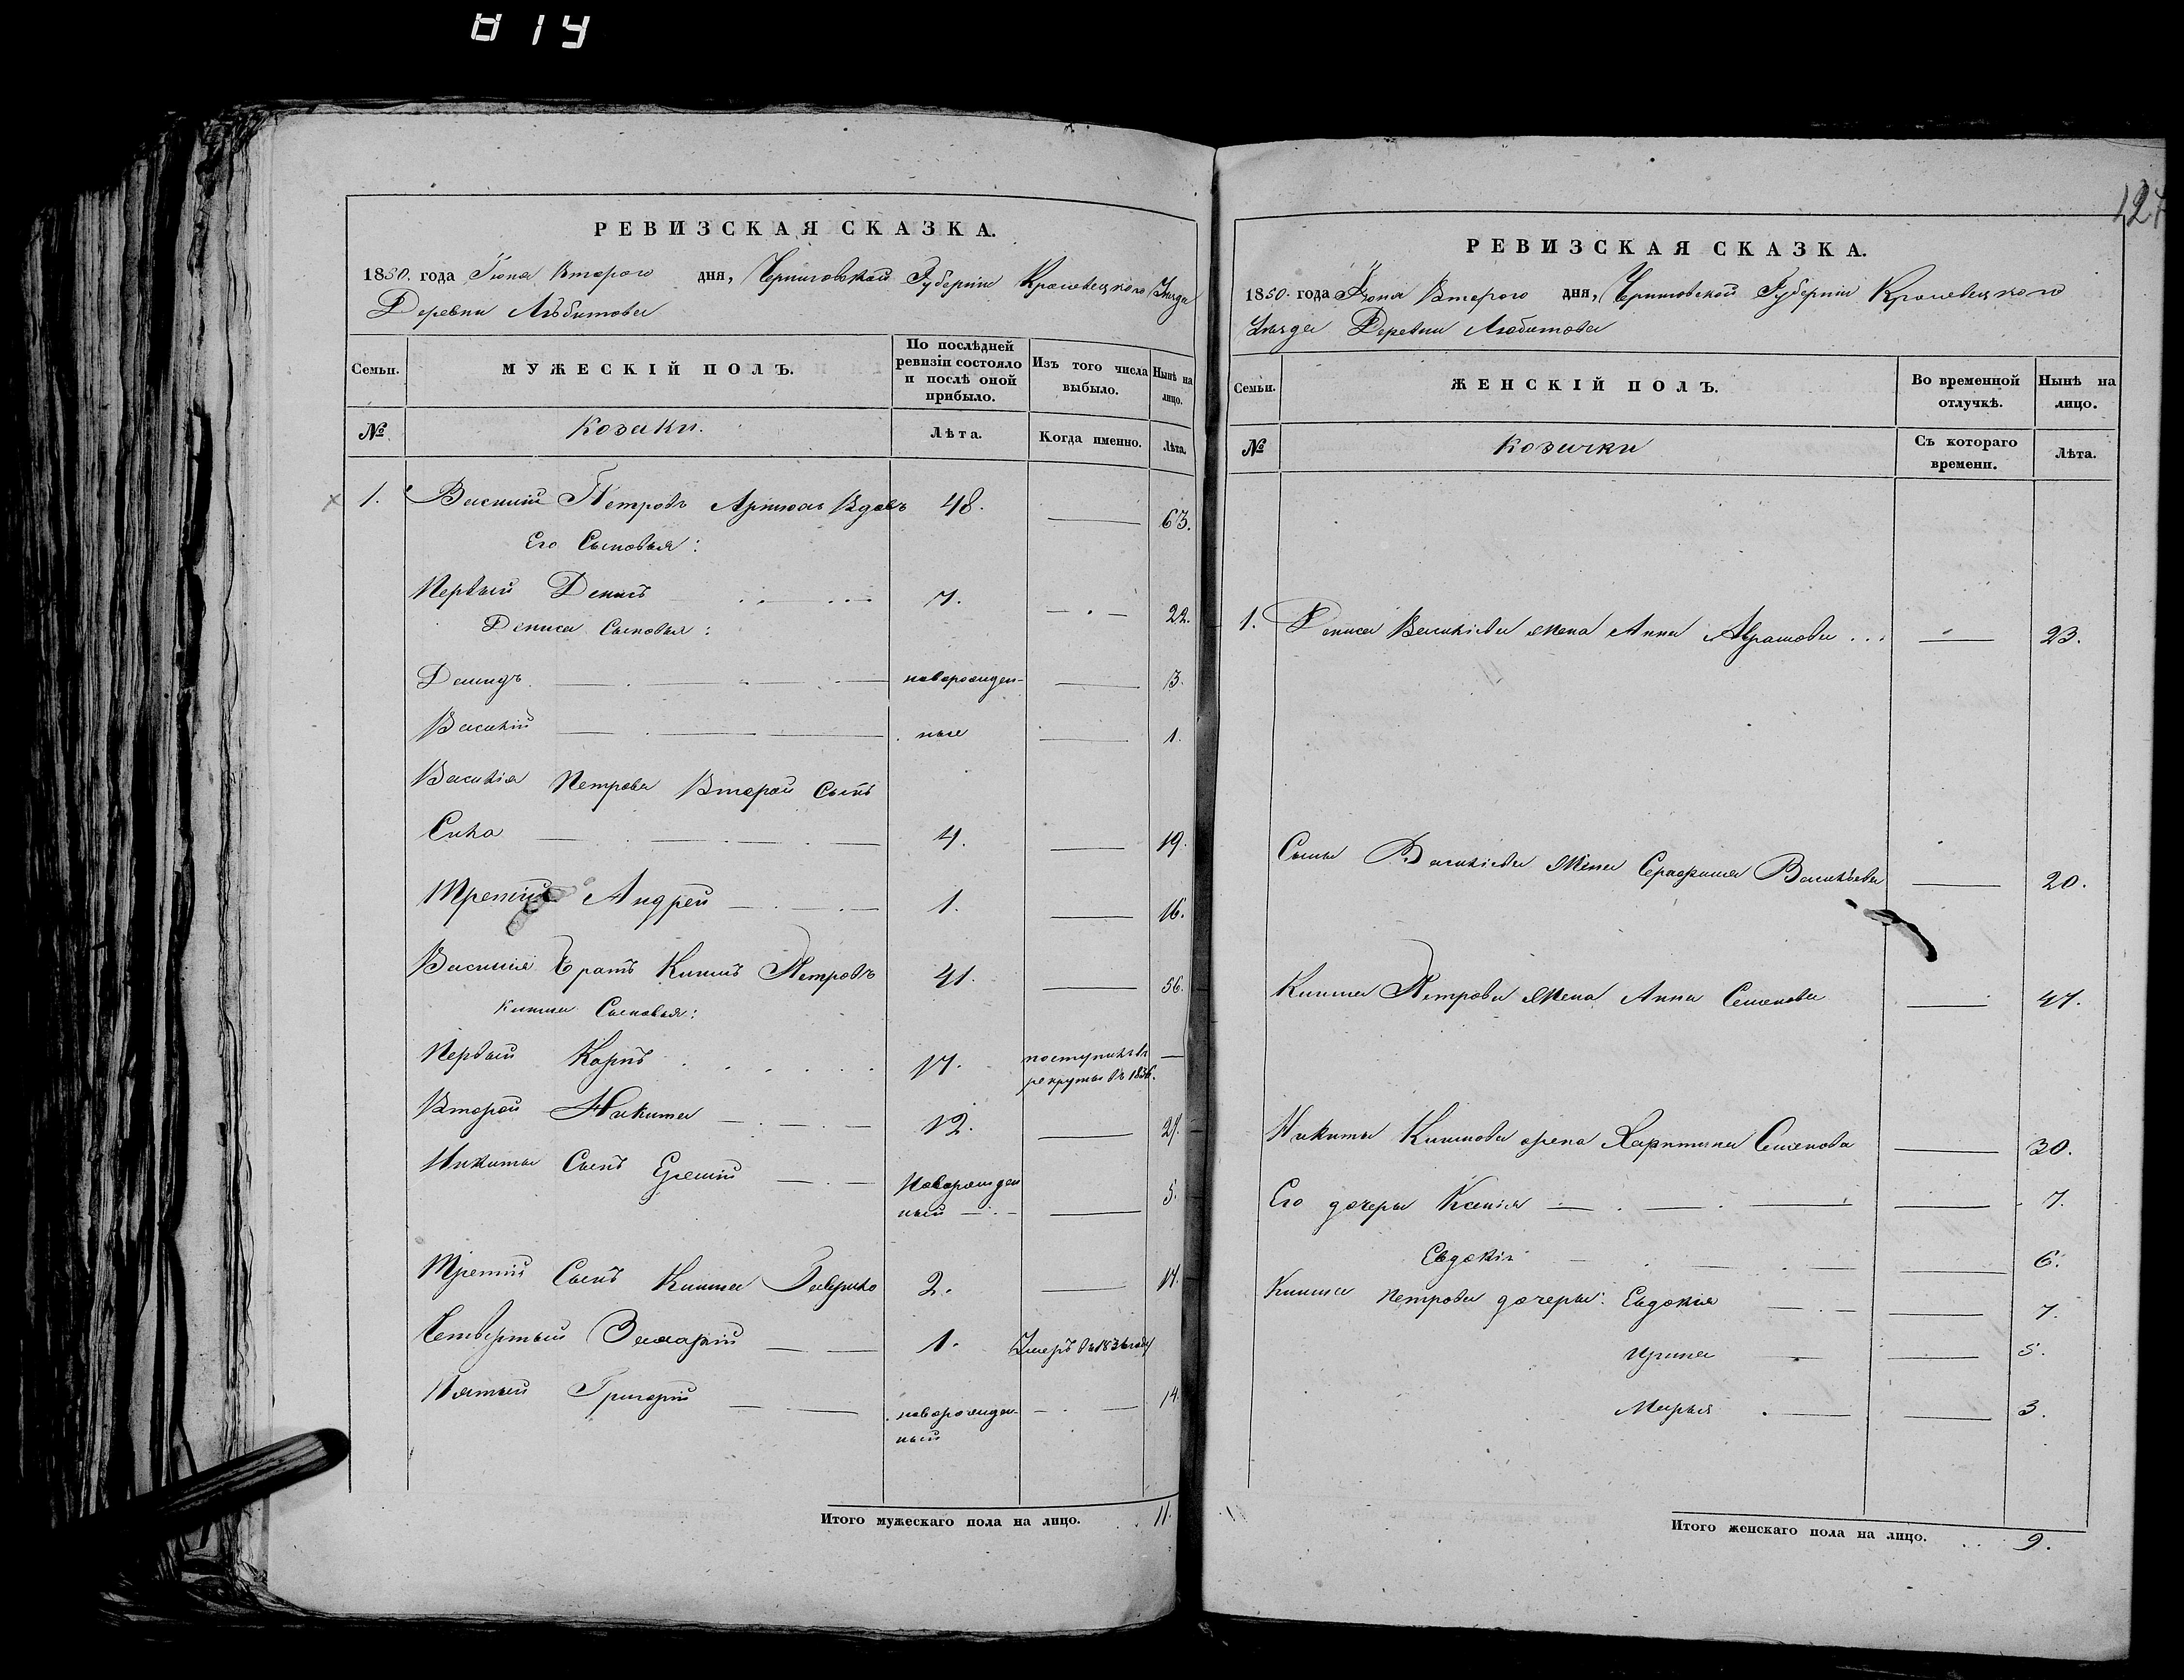 819
РЕВИЗСКАЯ СКАЗКА.
1850. года Іюня Второго дня, Черниговской Губерніи Кролевецкого Уезда
Деревни Любитова
Семьи.
МУЖЕСКІЙ ПОЛЪ.
По послѣдней ревизіи состояло и послѣ оной прибыло.
Изъ того числа выбыло.
Нынѣ на лицо.
№
Козаки.
Лѣта.
Когда именно.
Лѣта.
1. Василий Петровъ Артюхъ Вдовъ 48. 63.
Его Сыновья:
Первый Денисъ 7. 22.
Дениса Сыновья:
Демидъ новорожден- 3.
Василій ные 1.
Василія Петрова Второй Сынъ
Сила 4. 19.
Третий Андрей 1. 16.
Василия братъ Климъ Петровъ 41. 56.
Клима Сыновья:
Первый Карпъ 17. поступилъ въ
рекруты въ 1836.
Второй Никита 12. 27.
Никиты Сынъ Новорожден
ный 5.
Третий Сынъ Клима Гаврило 2. 17.
Четвертый 1. Умеръ въ 1836 году
Пятый Григорій новорожден-
ный 14.
Итого мужескаго пола на лицо. 11.
127
РЕВИЗСКАЯ СКАЗКА.
1850. года Іюня Второго дня, Черниговской Губерніи Кролевецкого
Уезда Деревни Любитова
Семьи.
ЖЕНСКІЙ ПОЛЪ.
Во временной отлучкѣ.
Нынѣ на лицо.
№
Козачки
Съ котораго времени.
Лѣта.
1. Дениса Васильева жена Анна Абрамова 23.
Силы Васильева жена Серафима Васильева 20.
Клима Петрова жена Анна Семенова 47.
Никиты Климова жена Харитина Семенова 30.
Его дочери Ксенія 7.
Евдокія 6.
Клима Петрова дочери: Евдокия 7.
Ирина 5.
Марья 3.
Итого женскаго пола на лицо. 9.